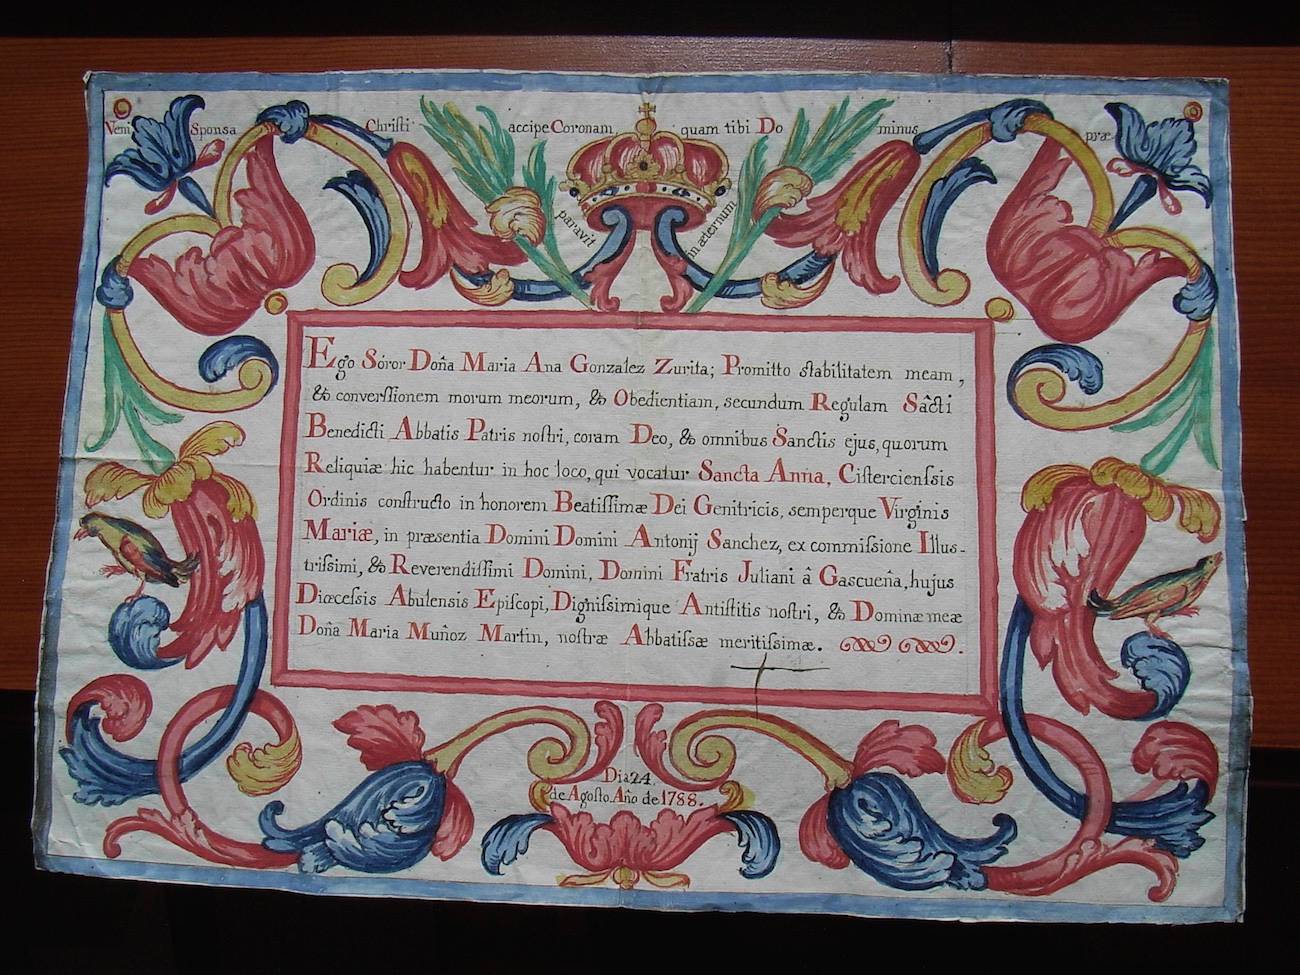 Veni Sponsa Christi accipe Coronam quam tibi Dominus præ
paravit in æternum
Ego Soror Doña Maria Ana Gonzalez Zurita; Promitto stabilitatem meam,
& converssionem morum meorum, & Obedientiam, secundum Regulam Sãcti
Benedicti Abbatis Patris nostri, coram Deo, & omnibus Sanctis ejus, quorum
Reliquiæ hic habentur in hoc loco, qui vocatur Sancta Anna, Cisterciensis
Ordinis constructo in honorem Beatissimæ Dei Genitricis, semperque Virginis
Mariæ, in præsentia Domini Domini Antonij Sanchez, ex commissione Illus-
trissimi, & Reverendissimi Domini, Domini Fratris Juliani â Gascueña, hujus
Diœcessis Abulensis Episcopi, Dignissimique Antistitis nostri, & Dominæ meæ
Doña Maria Muñoz Martin, nostræ Abbatissæ meritissimæ.
Dia 24
de Agosto. Año de 1788.